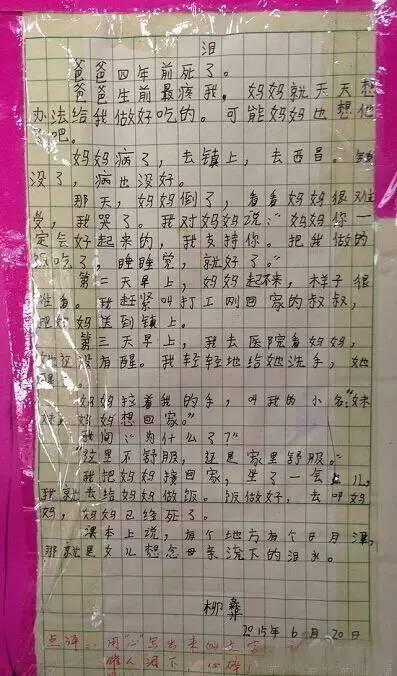 泪
爸爸四年前死了。
爸爸生前最疼我。妈妈就天天想
办法给我做好吃的。可能妈妈也想他
吧。
妈妈病了，去镇上，去西昌。钱
没了，病也没好。
那天，妈妈倒了，看看妈妈很难
受，我哭了。我对妈妈说：“妈妈你一
定会好起来的，我支持你。把我做的
饭吃了，睡睡觉，就好了。”
第二天早上，妈妈起不来，样子很
难看。我赶紧叫打工刚回家的叔叔，
把妈妈送到镇上。
第三天早上，我去医院看妈妈，
她还没有醒。我轻轻地给她洗手，她
醒了。
妈妈拉着我的手，叫我的小名：“妹
妹，妈妈想回家。”
我问：“为什么了？”
“这里不舒服，还是家里舒服。”
我把妈妈接回家，坐了一会儿，
我就去给妈妈做饭。饭做好，去叫妈
妈，妈妈已经死了。
课本上说，有个地方有个日月潭，
那就是女儿想念母亲流下的泪水。
柳彝
2015年6月20日
点评：用“心”写出来的文字
催人泪下